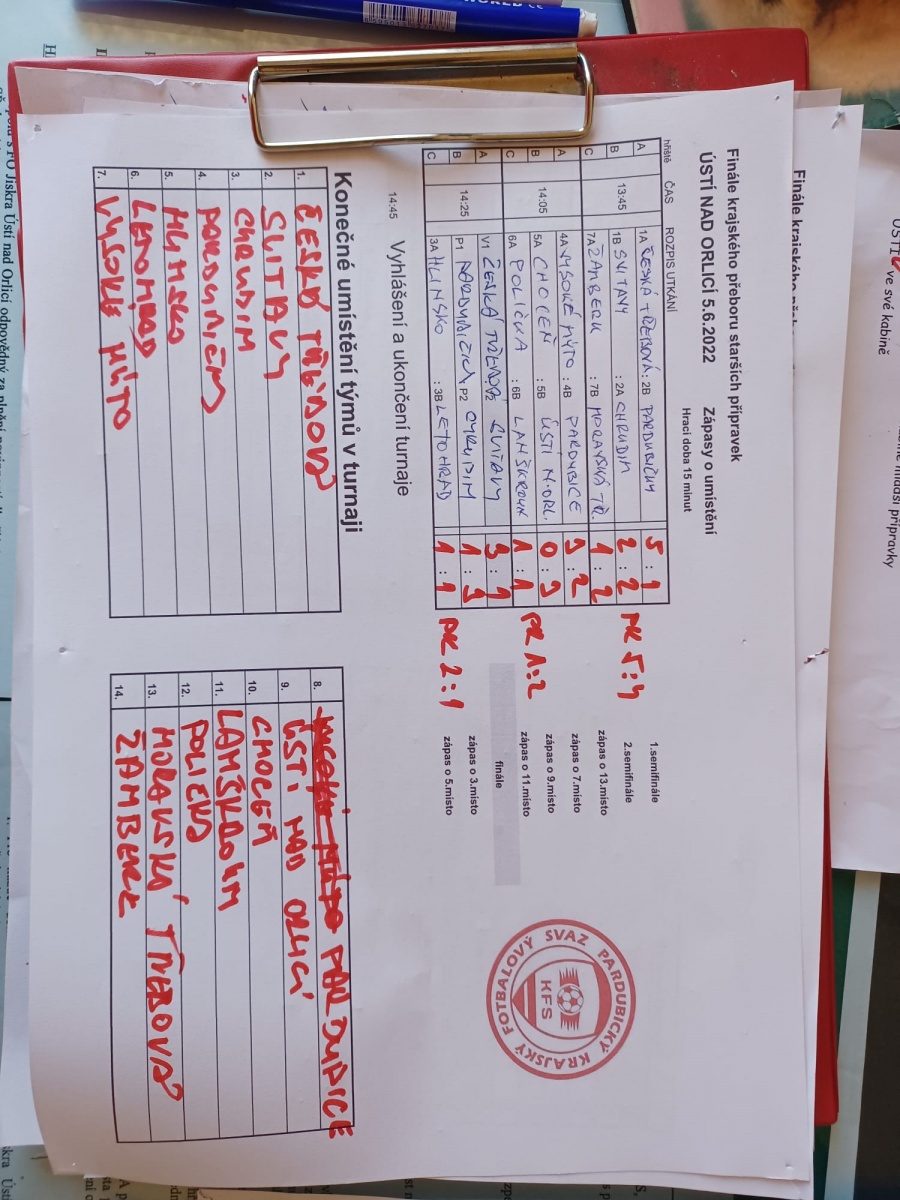 Finále krajského přeboru starších přípravek
ÚSTÍ NAD ORLICÍ 5.6.2022 Zápasy o umístění
Hrací doba 15 minut
hřiště ČAS ROZPIS UTKÁNÍ
A 1A ČESKÁ TŘEBOVÁ : 2B PARDUBIČKY 5 : 1 1.semifinále
B 13:45 1B SVITAVY : 2A CHRUDIM 2 : 2 PK 5:4 2.semifinále
C 7A ŽAMBERK : 7B MORAVSKÁ TŘ. 1 : 2 zápas o 13.místo
A 4A VYSOKÉ MÝTO : 4B PARDUBICE 3 : 2 zápas o 7.místo
B 14:05 5A CHOCEŇ : 5B ÚSTÍ N.ORL. 0 : 3 zápas o 9.místo
C 6A POLIČKA : 6B LANŠKROUN 1 : 1 PK 1:2 zápas o 11.místo
A V1 ČESKÁ TŘEBOVÁ V2 SVITAVY 3 : 1 finále
B 14:25 P1 PARDUBIČKY P2 CHRUDIM 1 : 3 zápas o 3.místo
C 3A HLINSKO : 3B LETOHRAD 1 : 1 PK 2:1 zápas o 5.místo
14:45 Vyhlášení a ukončení turnaje
Konečné umístění týmů v turnaji
1. ČESKÁ TŘEBOVÁ
2. SVITAVY
3. CHRUDIM
4. PARDUBIČKY
5. HLINSKO
6. LETOHRAD
7. VYSOKÉ MÝTO
8. PARDUBICE
9. ÚSTÍ NAD ORLICÍ
10. CHOCEŇ
11. LANŠKROUN
12. POLIČKA
13. MORAVSKÁ TŘEBOVÁ
14. ŽAMBERK
PARDUBICKÝ KRAJSKÝ FOTBALOVÝ SVAZ
KFS
Finále krajského
ve své kabině
mladší přípravky
FO Jiskra Ústí nad Orlicí odpovědný za plnění